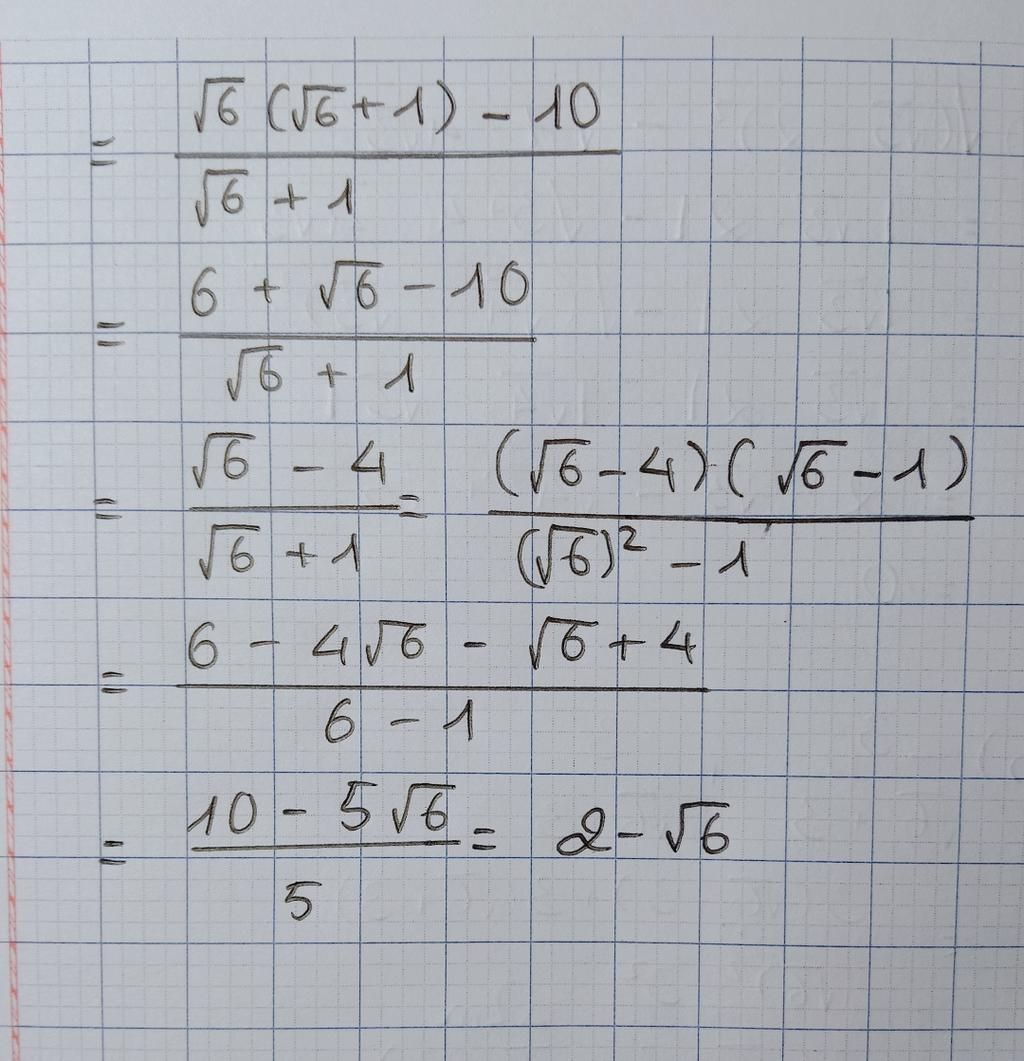 = (√6 (√6 + 1) - 10) / (√6 + 1)
= (6 + √6 - 10) / (√6 + 1)
= (√6 - 4) / (√6 + 1) = ((√6 - 4)(√6 - 1)) / ((√6)² - 1)
= (6 - 4√6 - √6 + 4) / (6 - 1)
= (10 - 5√6) / 5 = 2 - √6